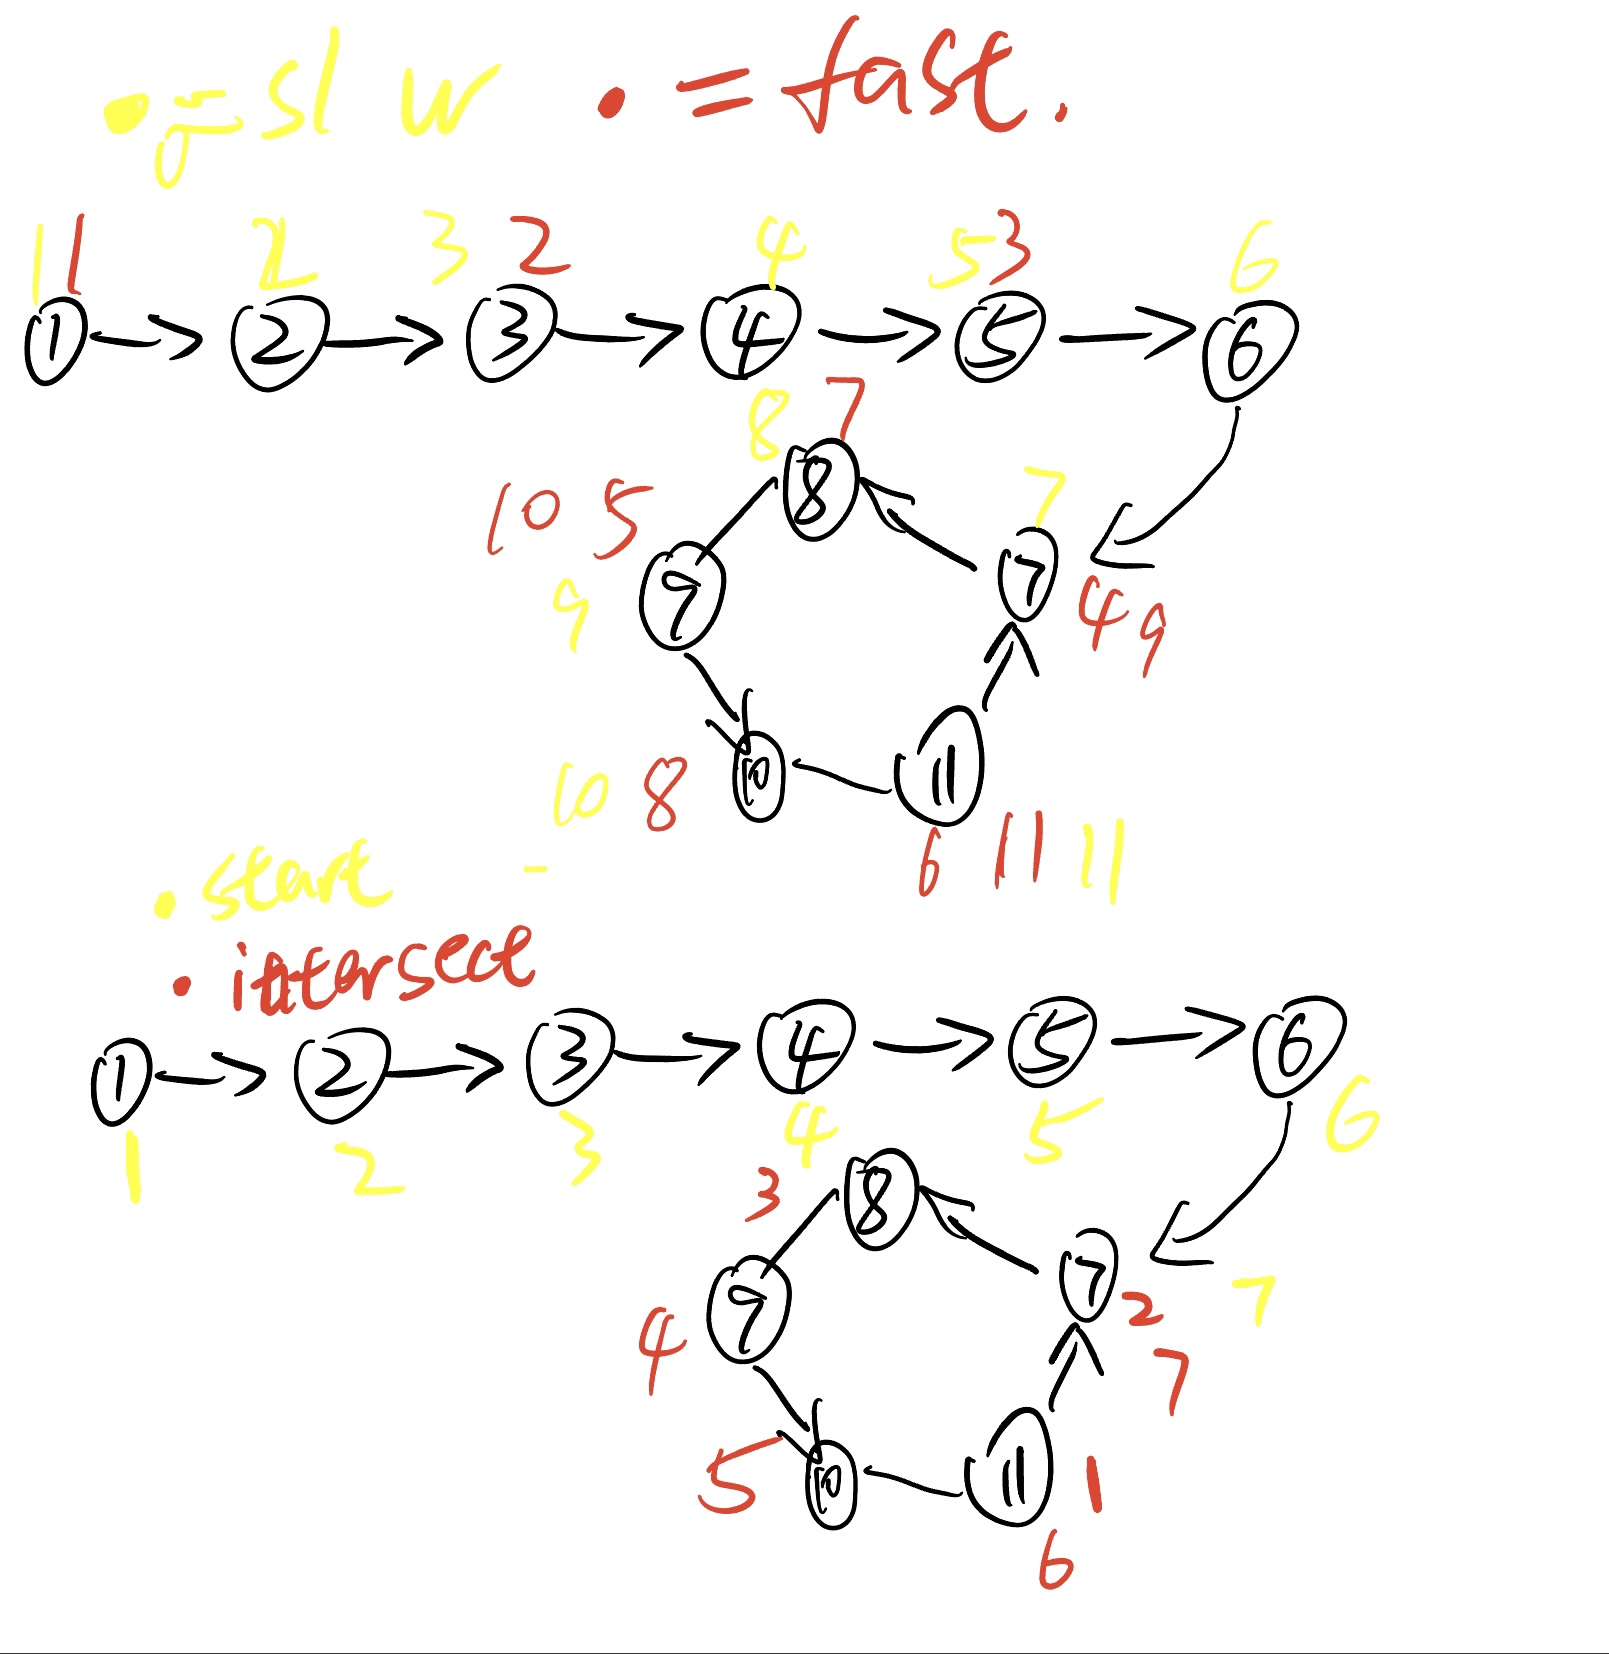 • = slow • = fast.
1 1 2 3 2 4 5 3 6
1 2 3 4 5 6
8 7
8
10 5 7
9 7
9 4 9
10 11
10 8
6 11 11
• start
• intersect
1 2 3 4 5 6
1 2 3 4 5 6
3 8
9 7
4 2 7
7
5 10 11 1
6